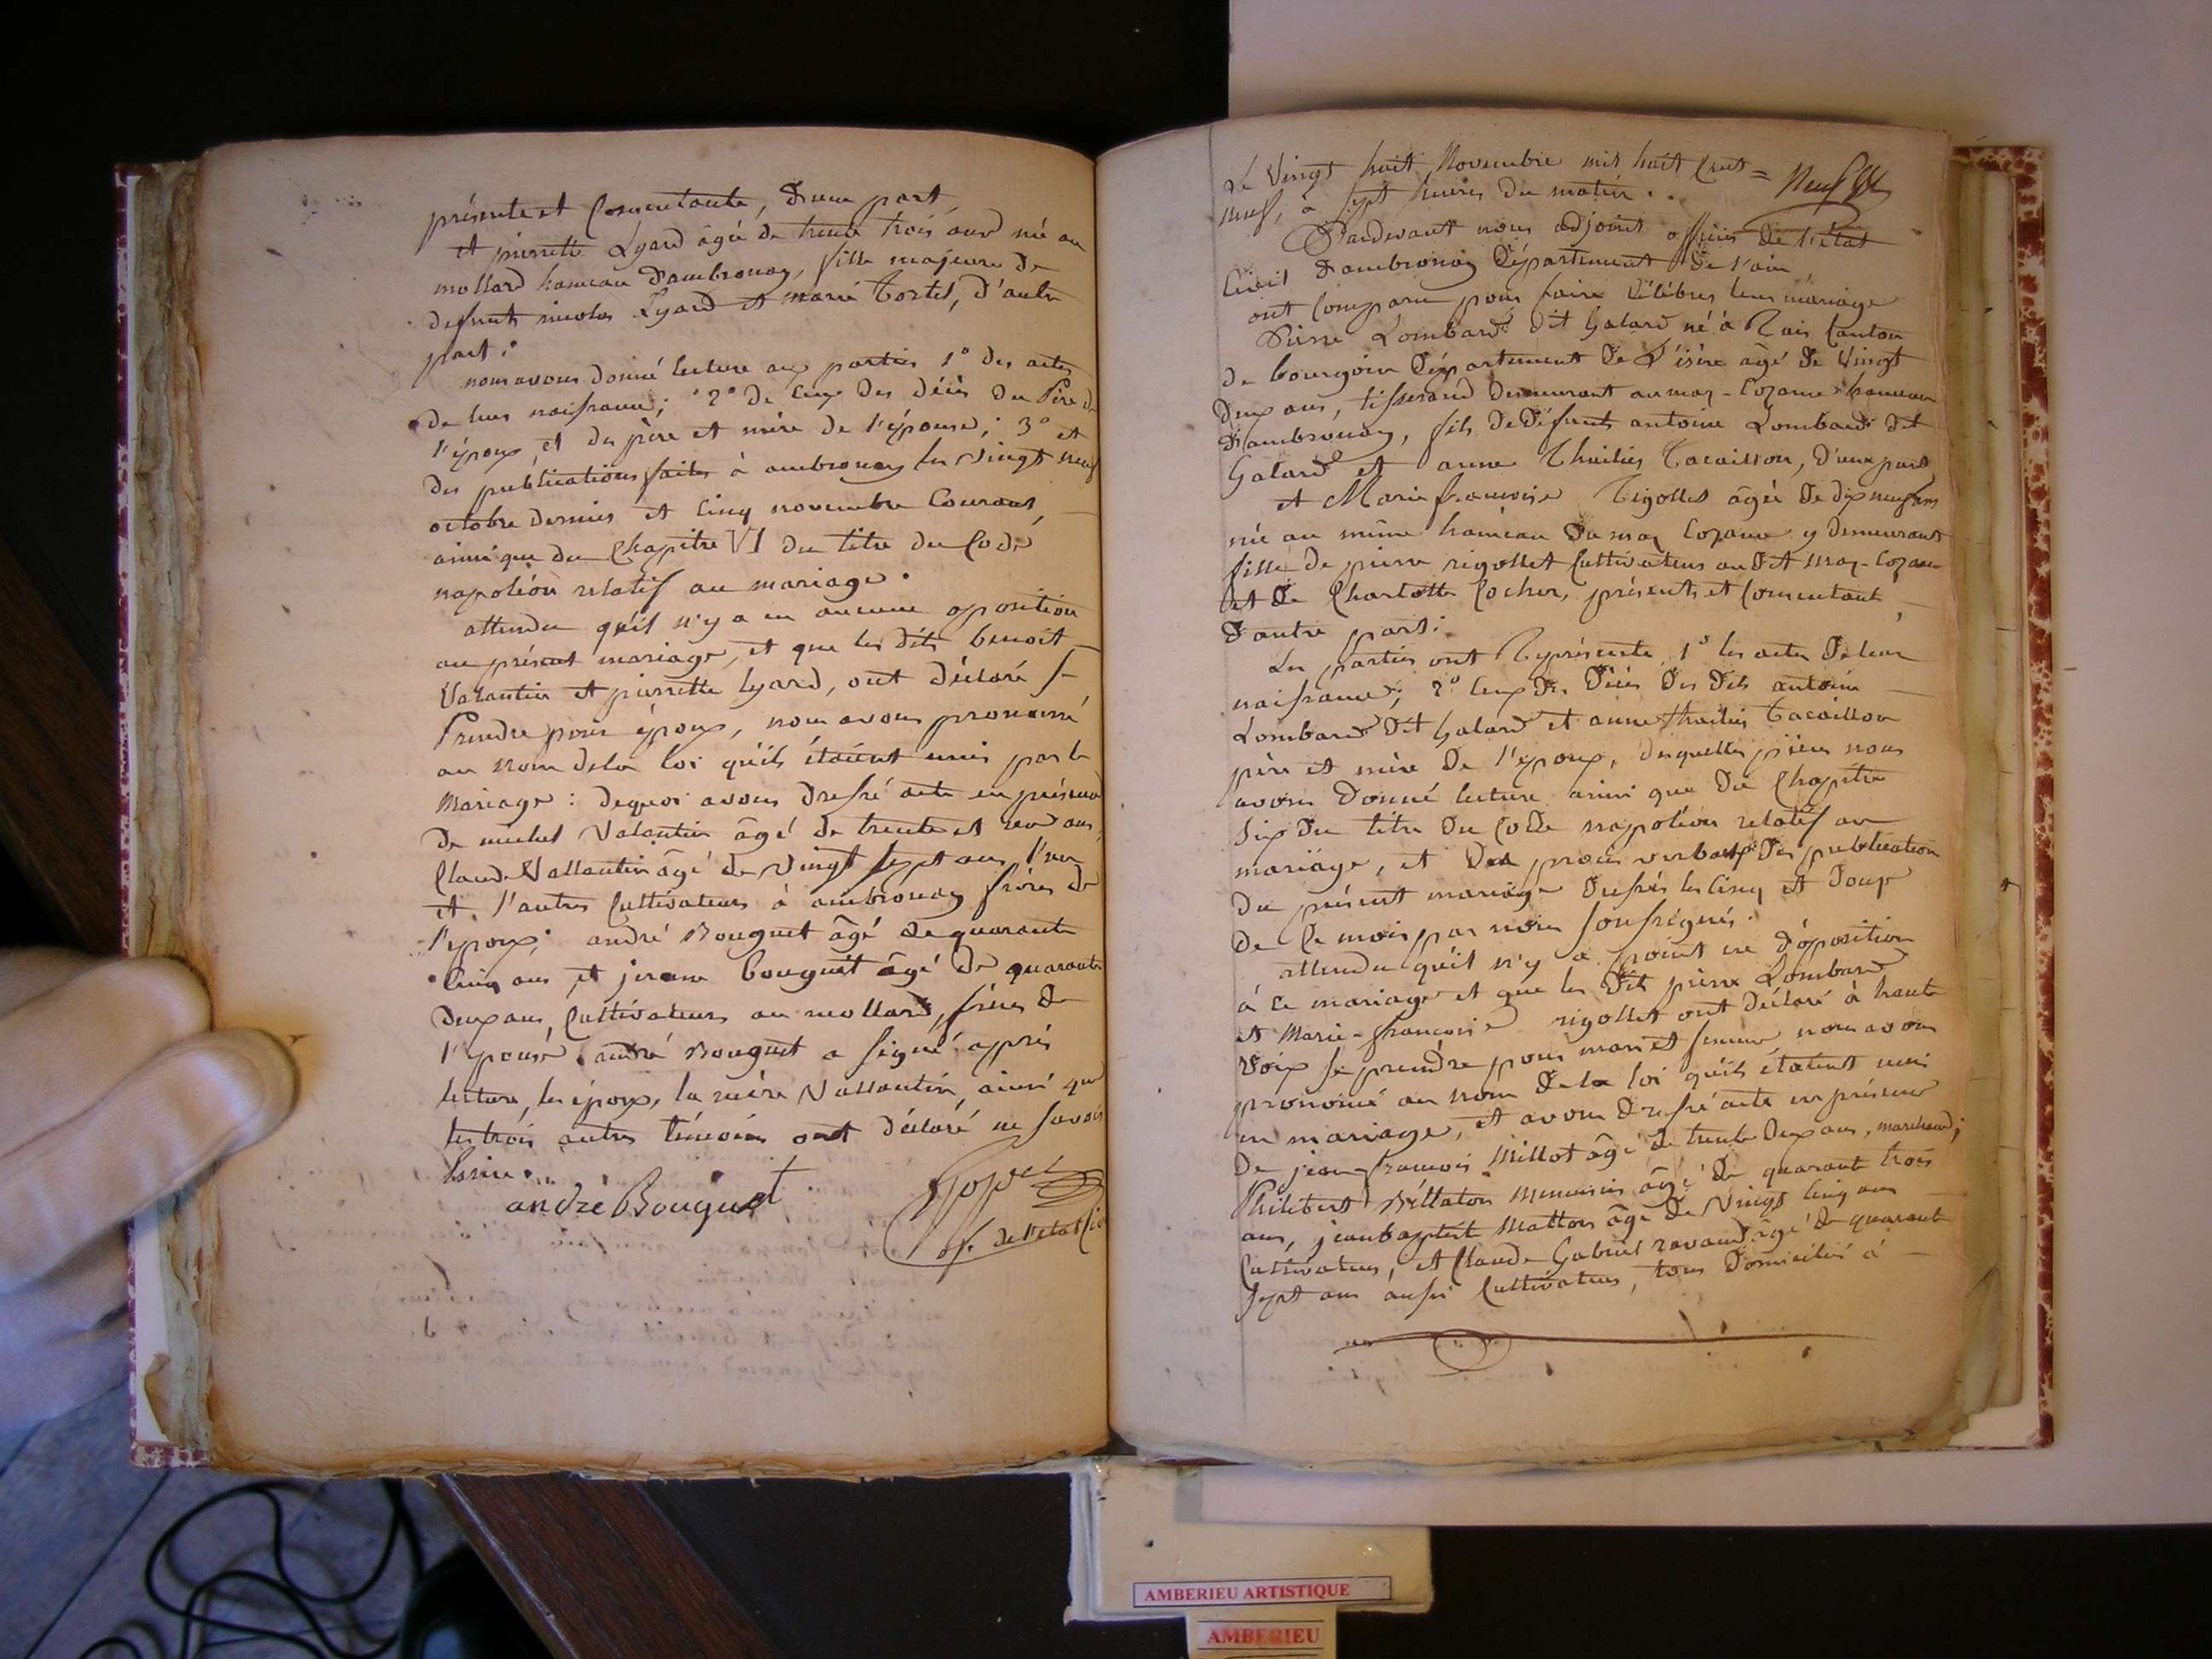 présente et Consentante, d'une part,
et pierrette Lyard âgée de trente trois ans née au
mollard hameau d'ambronay, fille majeure de
defunt nicolas Lyard et marie Tortel, d'autre
part.
nous avons donné lecture aux parties 1° des actes
de leurs naissance; 2° de ceux des décès du Père de
l'époux, et des père et mère de l'épouse; 3° et
des publications faites à ambronay les vingt neuf
octobre dernier et cinq novembre Courant,
ainsi que du Chapitre VI du titre du Code
napoléon relatif au mariage.
attendu qu'il n'y a eu aucune oposition
au présent mariage, et que les dits benoit
Valantin et pierrette lyard, ont déclaré se
Prendre pour époux, nous avons prononcé
au nom dela loi qu'ils étaient unis par le
Mariage: dequoi avons dressé acte en présence
de michel Valantin âgé de trente et un ans,
Claude Vallantin âgé de vingt sept ans l'un
et l'autres Cultivateurs à ambronay frères de
l'epoux; andré Bouguet âgé de quarante
cinq ans et jerome bouguet âgé de quarante
deux ans, Cultivateurs au mollard, frères de
l'epouse. andré Bouguet a signé après
lecture, les époux, la mère Vallantin, ainsi que
les trois autres témoins ont déclaré ne savoir
Ecrire.
andré Bouguet
of. de l'etat Civ
Le Vingt huit Novembre mil huit Cent =
neuf, à sept heures du matin.
Pardevant nous adjoint officier de l'état
Civil d'ambronay Département de l'ain,
ont Comparu pour faire Célébrer leur mariage
Pierre Lombard dit Galard né à Canton
de bourgoin Département de L'isère âgé de Vingt
deux ans, tisserand demeurant au maz-Cozance hameau
d'ambronay, fils de défunts antoine Lombard dit
Galard et anne Tacaillon, d'une part,
et Marie françoise Rigollet âgée de dix neuf ans
née au même hameau du maz Cozance y demeurant
fille de pierre rigollet Cultivateur au dit Maz-Cozance
et de Charlotte Cocher, présents et Consentant,
d'autre part.
Les parties ont Représenté 1° les actes de leur
naissance; 2° Ceux des Décès des dits antoine
Lombard dit Galard et anne Tacaillon
père et mère de l'époux, desquelles pièces nous
avons donné lecture ainsi que du Chapitre
Six du titre du Code napoléon relatif au
mariage, et des procès verbaux des publication
du présent mariage dressés les Cinq et douze
de Ce mois par nous soussignés.
attendu qu'il n'y a point eu d'oposition
à ce mariage et que les dits pierre Lombard
et Marie-françoise rigollet ont déclaré à haute
voix se prendre pour mari et femme, nous avons
prononcé au nom de la loi qu'ils étaient unis
en mariage, et avons dressé acte en présence
de jean françois Millot âgé de trente deux ans, marchand;
Philibert Billaton Menuisier âgé de quarante trois
ans, jean baptist Matton âgé de Vingt Cinq ans
Cultivateur, et Claude Gabriel ravaud âgé de quarante
Sept ans aussi Cultivateur, tous Domiciliés à
AMBERIEU ARTISTIQUE
AMBERIEU